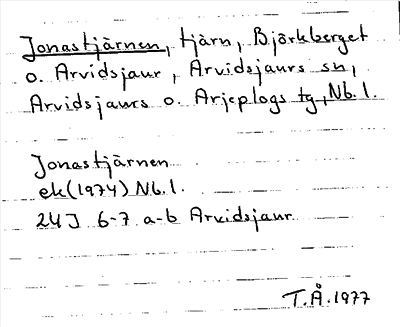 Jonastjärnen, tjärn, Björkberget
o. Arvidsjaur, Arvidsjaurs sn,
Arvidsjaurs o. Arjeplogs tg, Nb.l.
Jonastjärnen
ek(1974) Nb.l.
24J 6-7 a-b Arvidsjaur
T.Å.1977